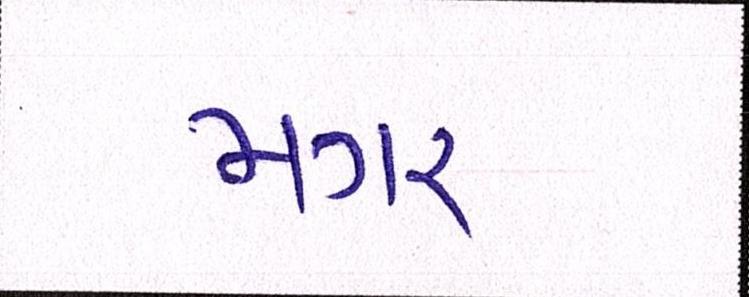 મગર